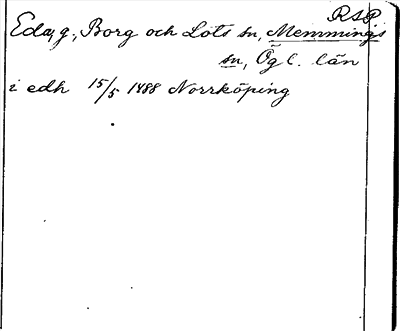 RSP
Eda, g., Borg och Lots sn, Memmings
sn, Ög l. län
i edh 15/5 1488 Norrköping